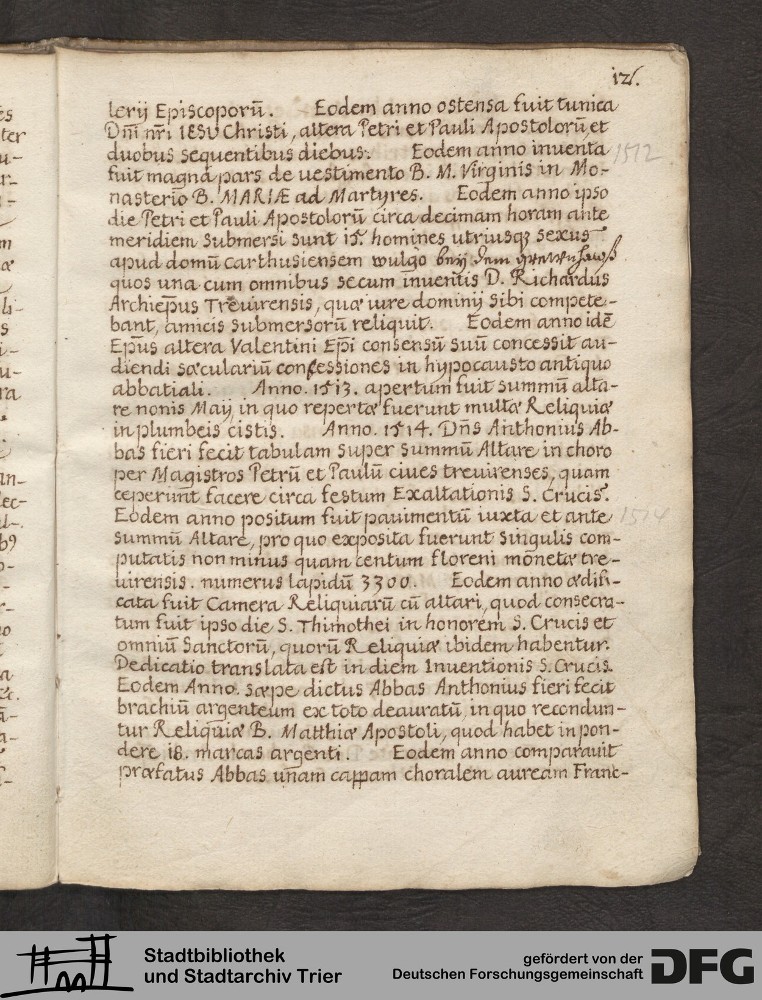 121.
lerij Episcoporū. Eodem anno ostensa fuit tunica
Dn̄i nr̄i IESV Christi, altera Petri et Pauli Apostolorū, et
duobus sequentibus diebus. Eodem anno inuenta
1512
fuit magna pars de uestimento B. M. Virginis in Mo-
nasterio B. MARIÆ ad Martyres. Eodem anno ipso
die Petri et Pauli Apostolorū circa decimam horam ante
meridiem submersi sunt 15. homines utriusqȝ sexus
apud domū carthusiensem wulgo beÿ dem
quos una cum omnibus secum inuentis D. Richardus
Archiep̄us Treuirensis, quæ iure dominij sibi compete-
bant, amicis submersorū reliquit. Eodem anno idē
Ep̄us altera Valentini Ep̄i consensū suū concessit au-
diendi sæculariū confessiones in hypocausto antiquo
abbatiali. Anno. 1513. apertum fuit summū alta-
re nonis Maij, in quo repertæ fuerunt multæ Reliquiæ
in plumbeis cistis. Anno. 1514. Dn̄s Anthonius Ab-
bas fieri fecit tabulam super summū Altare in choro
per Magistros Petrū et Paulū ciues treuirenses, quam
ceperunt facere circa festum Exaltationis S. Crucis.
Eodem anno positum fuit pauimentū iuxta et ante
1514
summū Altare, pro quo exposita fuerunt singulis com-
putatis non minus quam centum floreni monetæ tre-
uirensis. numerus lapidū 3300. Eodem anno ædifi-
cata fuit Camera Reliquiarū cū altari, quod consecra-
tum fuit ipso die S. Thimothei in honorem S. Crucis et
omniū Sanctorū, quorū Reliquiæ ibidem habentur.
Dedicatio translata est in diem Inuentionis S. Crucis.
Eodem Anno. sæpe dictus Abbas Anthonius fieri fecit
brachiū argenteum ex toto deauratū, in quo recondun-
tur Reliquiæ B. Matthiæ Apostoli, quod habet in pon-
dere 18. marcas argenti. Eodem anno comparauit
præfatus Abbas unam cappam choralem auream Franc-
Stadtbibliothek
und Stadtarchiv Trier
gefördert von der
Deutschen Forschungsgemeinschaft
DFG